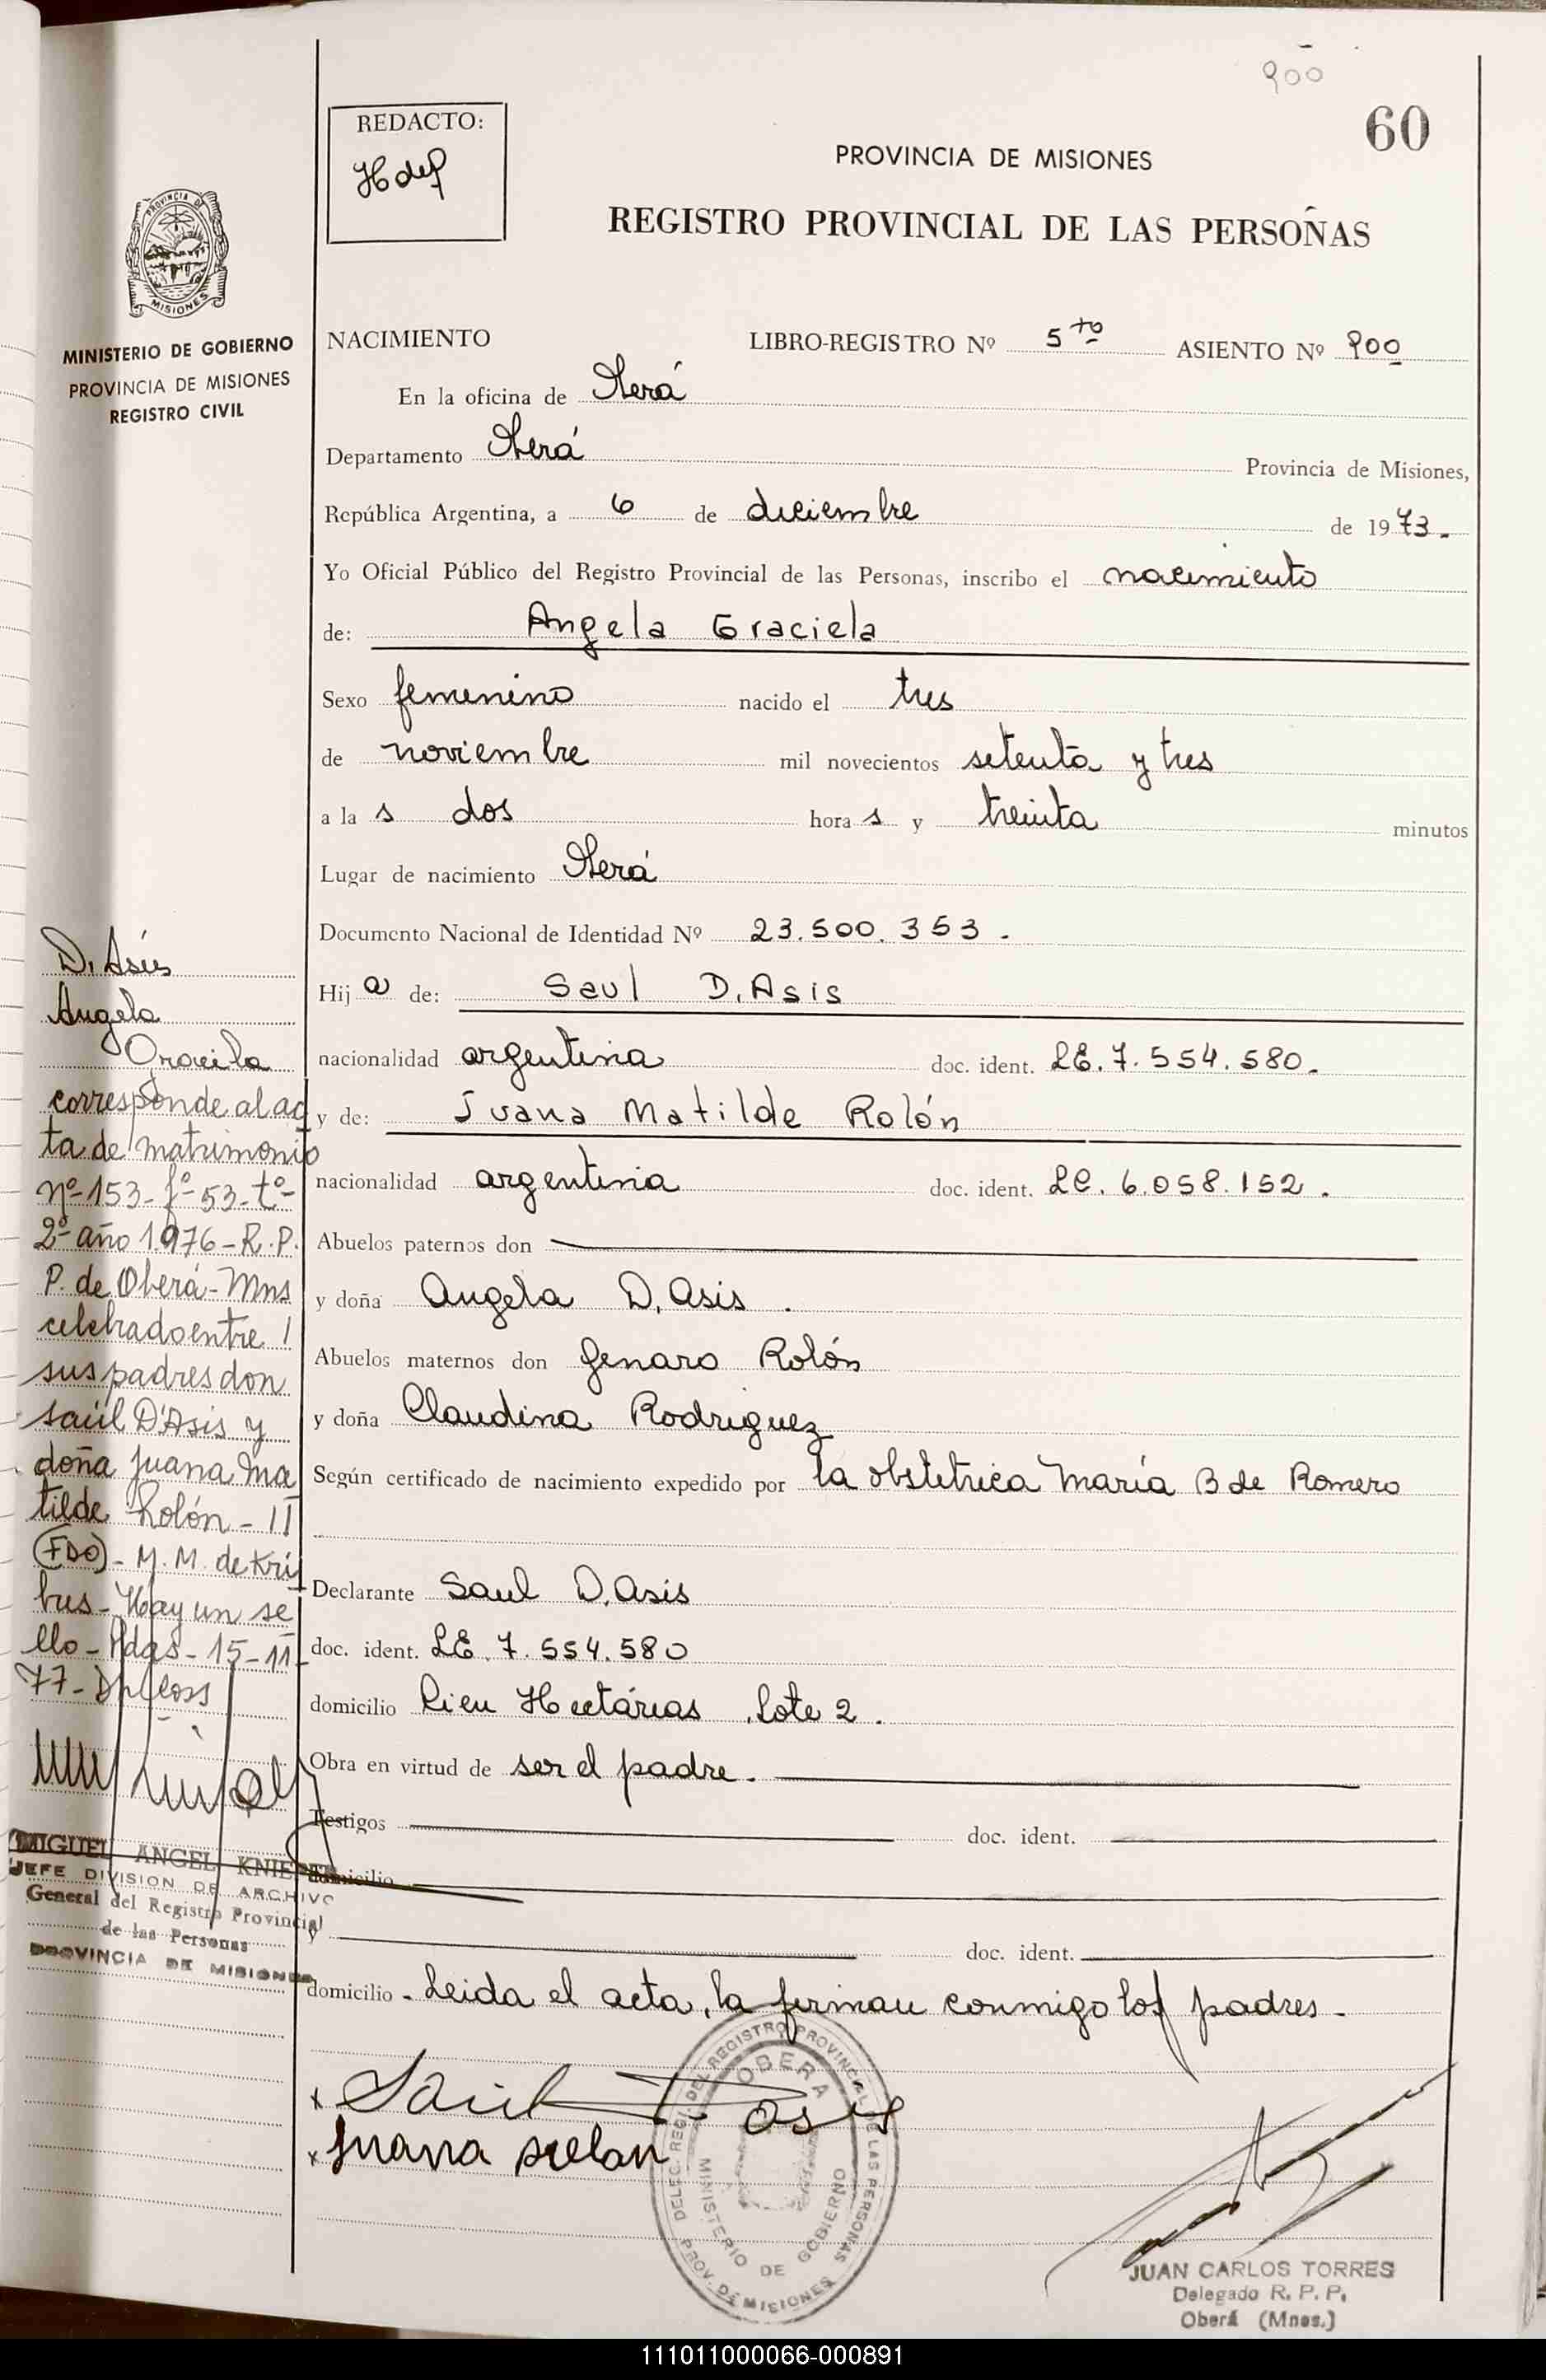 900
60
REDACTO:
PROVINCIA DE MISIONES
REGISTRO PROVINCIAL DE LAS PERSONAS
PROVINCIA DE
MISIONES
MINISTERIO DE GOBIERNO
PROVINCIA DE MISIONES
REGISTRO CIVIL
NACIMIENTO LIBRO-REGISTRO Nº 5to ASIENTO Nº 900
En la oficina de Oberá
Departamento Oberá Provincia de Misiones,
República Argentina, a 6 de diciembre de 1973.
Yo Oficial Público del Registro Provincial de las Personas, inscribo el nacimiento
de: Angela Graciela
Sexo femenino nacido el tres
de noviembre mil novecientos setenta y tres
a la s dos hora s y treinta minutos
Lugar de nacimiento Oberá
Documento Nacional de Identidad Nº 23.500.353.
Hij a de: Saul D. Asis
nacionalidad argentina doc. ident. LE. 7.554.580.
y de: Juana Matilde Rolón
nacionalidad argentina doc. ident. LC. 6.058.152.
Abuelos paternos don
y doña Angela D. Asis.
Abuelos maternos don Genaro Rolón
y doña Claudina Rodriguez
Según certificado de nacimiento expedido por la obstetrica María B de Romero
Declarante Saul D. Asis
doc. ident. LE. 7.554.580
domicilio Cien Hectáreas, Lote 2.
Obra en virtud de ser el padre.
Testigos doc. ident.
domicilio
y doc. ident.
domicilio - Leida el acta, la firman conmigo los padres -
x Saul Asis
x Juana Rolan
DELEG. REGI. DEL REGISTRO PROVINCIAL DE LAS PERSONAS
OBERA
MINISTERIO DE GOBIERNO
PROV. DE MISIONES
JUAN CARLOS TORRES
Delegado R. P. P.
Oberá (Mnes.)
D. Asis
Angela
Graciela
corresponde al ac
ta de matrimonio
nº-153-fº-53-tº-
2º año 1976-R.P.
P. de Oberá-Mns
celebrado entre
sus padres don
Saúl D'Asis y
doña Juana Ma
tilde Rolón-II
(FDO)-M.M. de Kri
bus-Hay un se
llo-Pdas-15-11-
77-
MIGUEL ANGEL
JEFE DIVISION DE ARCHIVO
General del Registro Provincial
de las Personas
PROVINCIA DE MISIONES
111011000066-000891